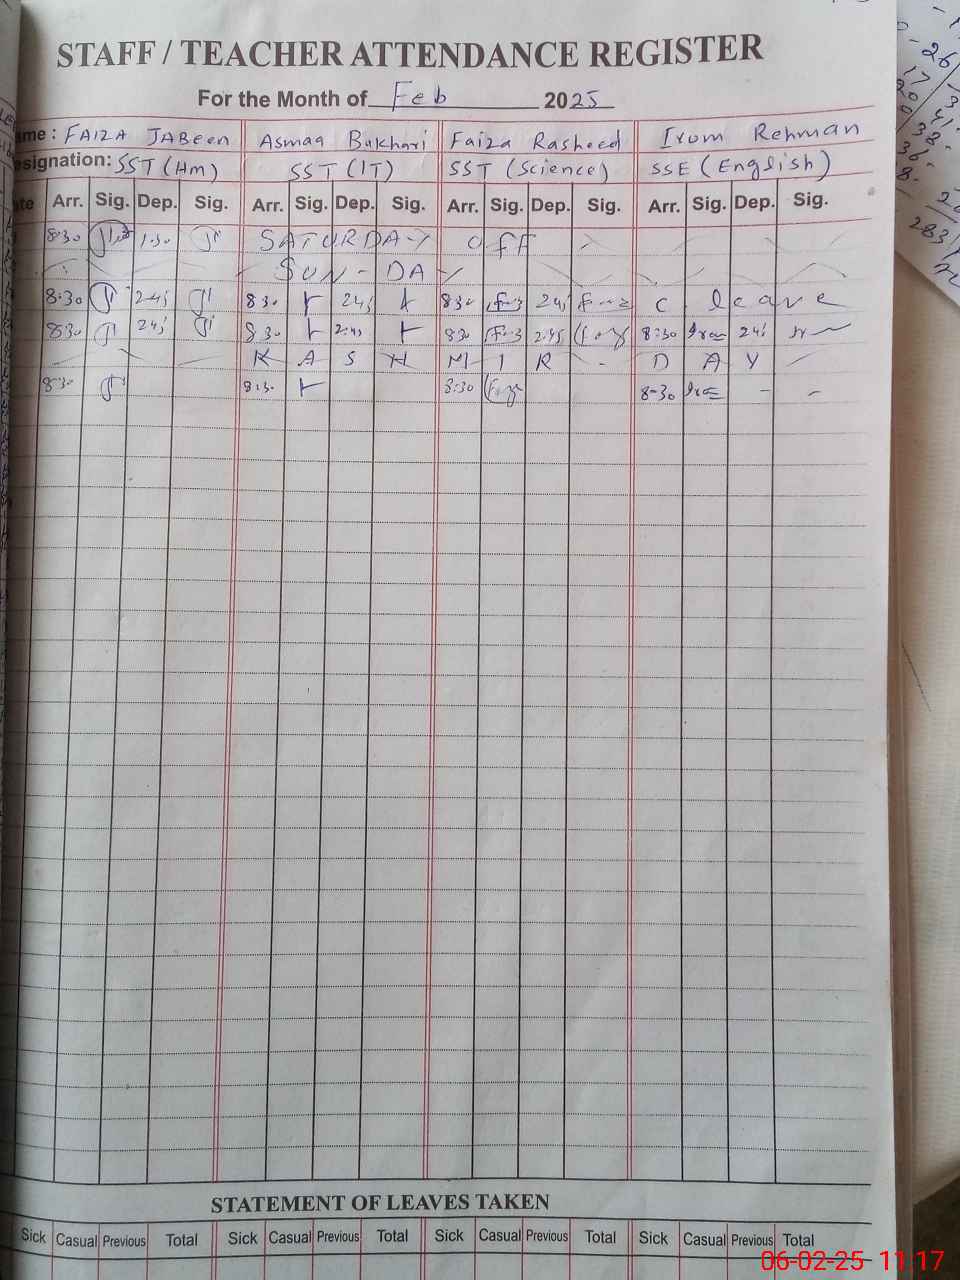 STAFF / TEACHER ATTENDANCE REGISTER
For the Month of Feb 2025
ame : FAIZA JABeen Asmaa Bukhari Faiza Rasheed Irum Rehman
esignation: SST (Hm) SST (IT) SST (Science) SSE (English)
ate Arr. Sig. Dep. Sig. Arr. Sig. Dep. Sig. Arr. Sig. Dep. Sig. Arr. Sig. Dep. Sig.
8:30 1.30 SATURDAY OFF
SUN - DAY
8:30 245 830 245 830 245 C leave
830 245 830 2:45 830 2:45 8:30 245
KASHMIR - DAY
8:30 8:30 8:30 8-30 - -
STATEMENT OF LEAVES TAKEN
Sick Casual Previous Total Sick Casual Previous Total Sick Casual Previous Total Sick Casual Previous Total
06-02-25 11:17
26
17
20
41
38
36
8
283